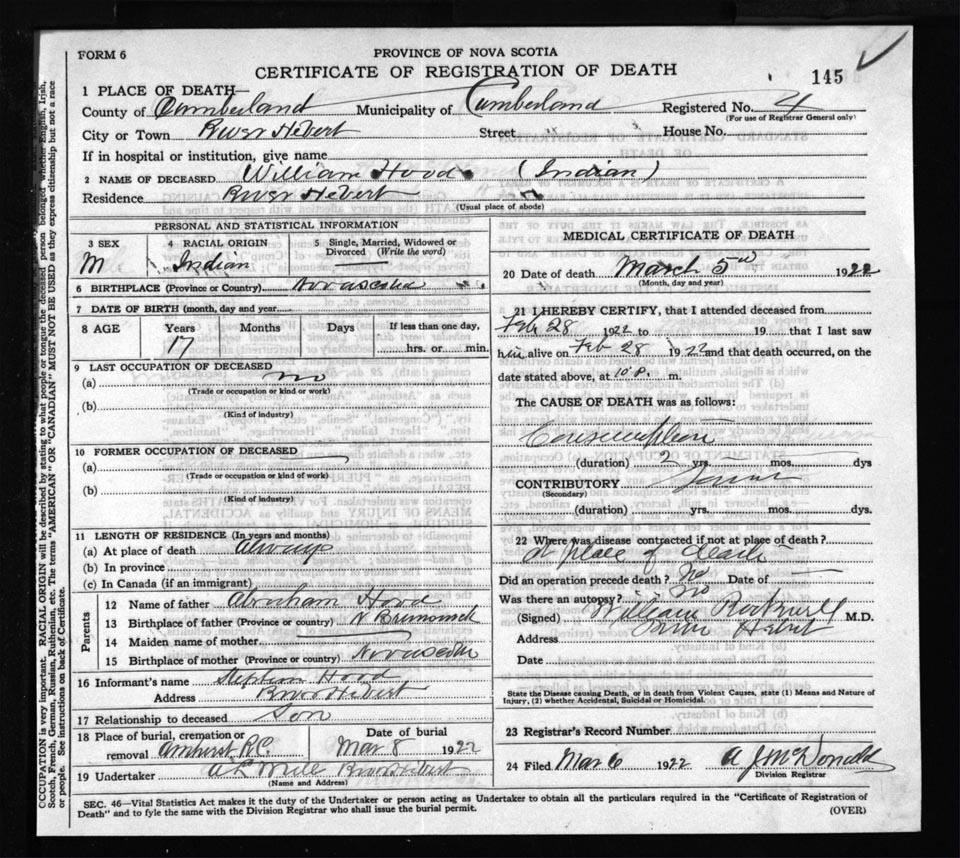 FORM 6
PROVINCE OF NOVA SCOTIA
CERTIFICATE OF REGISTRATION OF DEATH
145
1 PLACE OF DEATH—
County of Cumberland Municipality of Cumberland Registered No. 4
(For use of Registrar General only)
City or Town River Hebert Street House No.
If in hospital or institution, give name
2 NAME OF DECEASED William Hood (Indian)
Residence River Hebert
(Usual place of abode)
PERSONAL AND STATISTICAL INFORMATION
3 SEX
M
4 RACIAL ORIGIN
Indian
5 Single, Married, Widowed or Divorced (Write the word)
6 BIRTHPLACE (Province or Country) Nova Scotia
7 DATE OF BIRTH (month, day and year)
8 AGE Years Months Days If less than one day,
17 hrs. or min.
9 LAST OCCUPATION OF DECEASED
(a) no
(Trade or occupation or kind or work)
(b)
(Kind of industry)
10 FORMER OCCUPATION OF DECEASED
(a)
(Trade or occupation or kind of work)
(b)
(Kind of industry)
11 LENGTH OF RESIDENCE (In years and months)
(a) At place of death always
(b) In province
(c) In Canada (if an immigrant)
Parents
12 Name of father Abraham Hood
13 Birthplace of father (Province or country) N Brunswick
14 Maiden name of mother
15 Birthplace of mother (Province or country) Nova Scotia
16 Informant's name Stephen Hood
Address River Hebert
17 Relationship to deceased Son
18 Place of burial, cremation or removal Amherst R.C.
Date of burial
Mar 8 1922
19 Undertaker River Hebert
(Name and Address)
MEDICAL CERTIFICATE OF DEATH
20 Date of death March 5 1922
(Month, day and year)
21 I HEREBY CERTIFY, that I attended deceased from
Feb 28 1922 to 19 that I last saw
him alive on Feb 28 1922 and that death occurred, on the
date stated above, at 10 P. m.
The CAUSE OF DEATH was as follows:
Consumption
(duration) 2 yrs. mos. dys
CONTRIBUTORY
(Secondary)
(duration) yrs. mos. dys.
22 Where was disease contracted if not at place of death?
at place of death
Did an operation precede death? No Date of
Was there an autopsy? No
(Signed) William Rockwell M.D.
Address River Hebert
Date
State the Disease causing Death, or in death from Violent Causes, state (1) Means and Nature of
Injury, (2) whether Accidental, Suicidal or Homicidal.
23 Registrar's Record Number
24 Filed Mar 6 1922 A J McDonald
Division Registrar
SEC. 46—Vital Statistics Act makes it the duty of the Undertaker or person acting as Undertaker to obtain all the particulars required in the "Certificate of Registration of
Death" and to fyle the same with the Division Registrar who shall issue the burial permit.
(OVER)
OCCUPATION is very important. RACIAL ORIGIN will be described by stating to what people or tongue the deceased person belonged whether English, Irish,
Scotch, French, German, Russian, Ruthenian, etc. The terms "AMERICAN" OR "CANADIAN" MUST NOT BE USED as they express citizenship but not a race
or people. See instructions on back of Certificate.